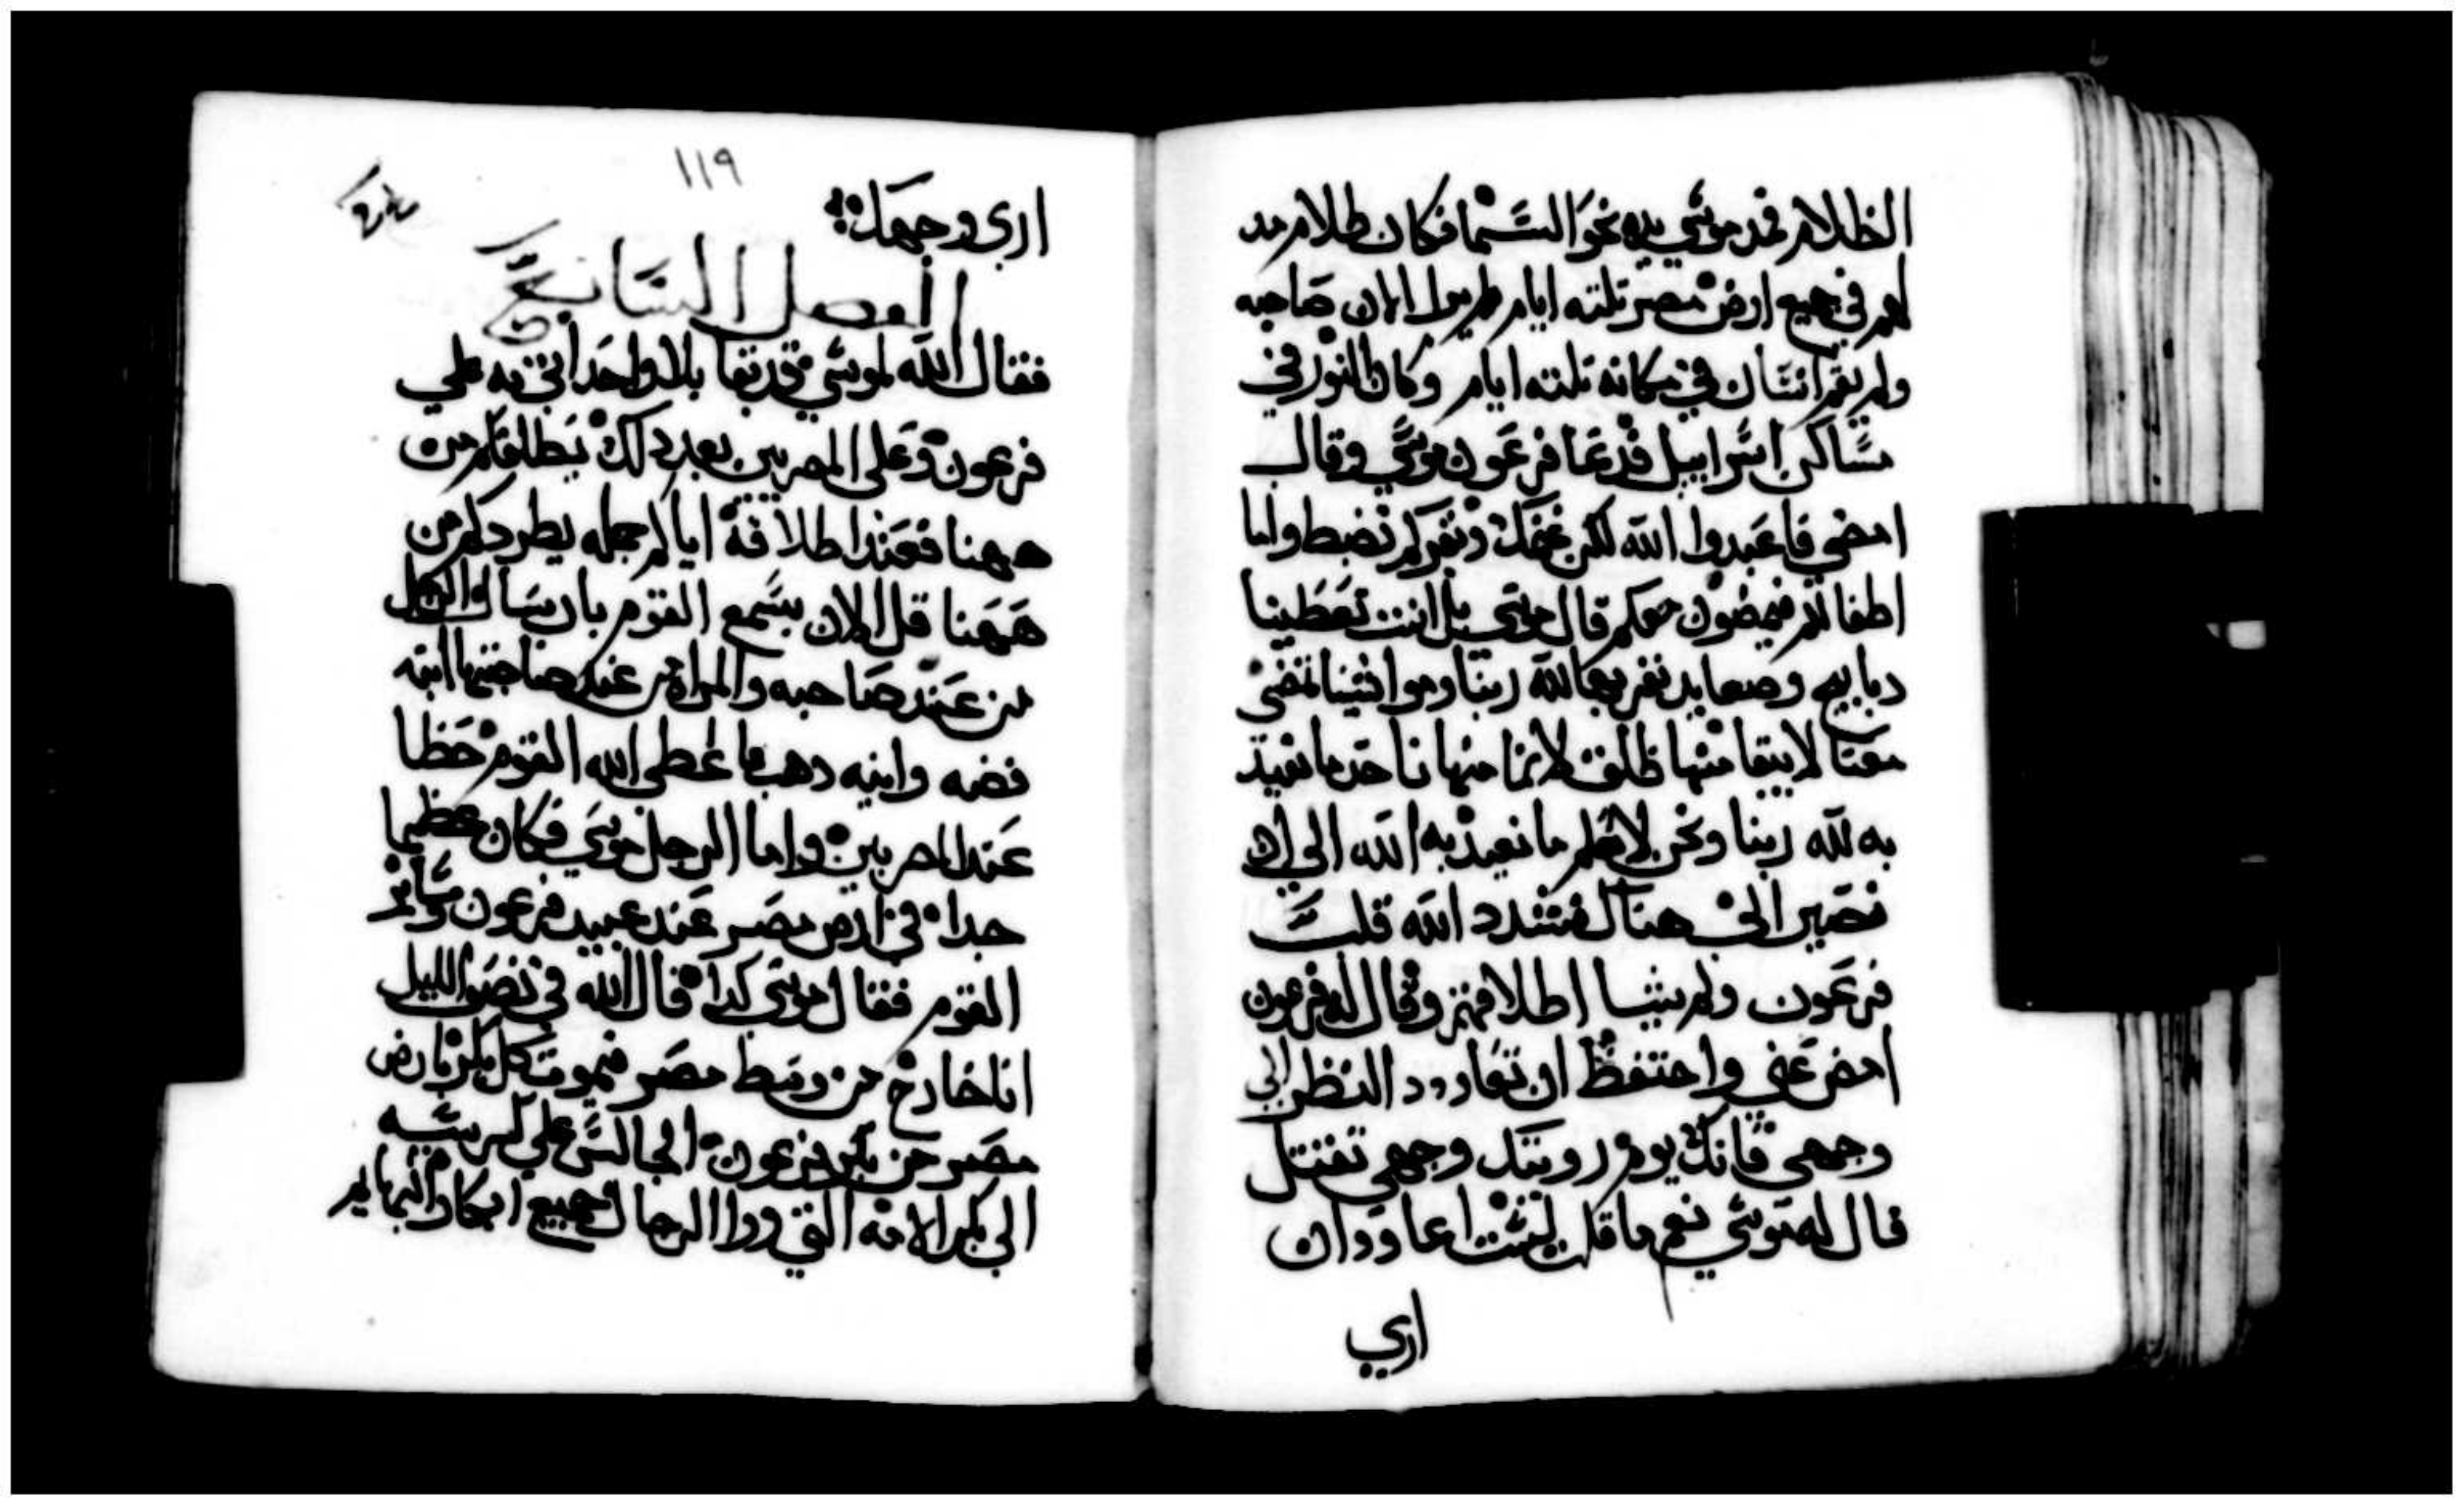 الظلام فمد موسي يده نحو السما فكان ظلام مد
لهم في جميع ارض مصر تلته ايام لم يرا انسان صاحبه
ولم يقم انسان في مكانه تلته ايام وكان النور في
مساكن اسراييل فدعا فرعون موسي وقال
امضي فاعبدوا الله لكن غنمك وبقركم تضبط واما
اطفالكم فيمضون معكم قال موسي بل انت تعطينا
دبايح وصعايد نقربها لله ربنا ومواشينا تمضي
معنا لا يبقا منها ظلف لانما منها ناخد ما نعبد
به لله ربنا ونحن لا نعلم ما نعبد به الله الي ان
نصير الي هناك فشدد الله قلب
فرعون ولم يشا اطلاقهم وقال له فرعون
امض عني واحتفظ ان تعاود النظر الي
وجهي فانك يوم رويتك وجهي تقتل
قال له موسي نعم ما قلت لست اعاود ان
اري
١١٩
اري وجهك
الفصل السابع
فقال الله لموسي قد بقا بلا واحد اتي به علي
فرعون وعلي المصريين بعد دلك يطلقكم من
ههنا فعند اطلاقه اياكم جمله يطردكم من
ههنا قل الان بسمع القوم بان يسال الرجل
من عند صاحبه والمراه من عند صاحبتها انيه
فضه وانيه دهب فاعطي الله القوم حظا
عند المصريين واما الرجل موسي فكان عظيما
جدا في ارض مصر عند عبيد فرعون وساير
القوم فقال موسي كدا قال الله في نصف الليل
انا خارج من وسط مصر فيموت كل بكر بارض
مصر من بكر فرعون الجالس علي كرسيه
الي بكر الامه التي ورا الرحا وجميع ابكار البهايم